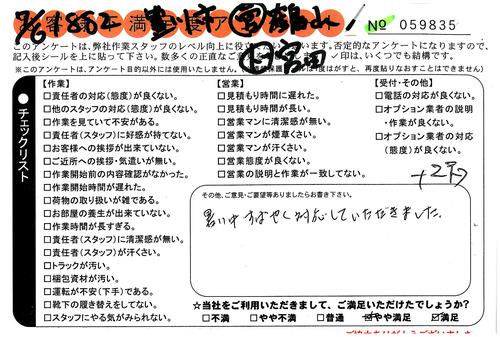 № 059835
このアンケートは、弊社作業スタッフのレベル向上に役立たせ
ています。否定的なアンケートになりますので、
記入後シールを上に貼って下さい。数多くの正直なご意
印は、いくつでも結構です。
※このアンケートは、アンケート目的以外には使用いたしません。
保護シールは1度はがすと、再度貼りなおすことはできません)
チェックリスト
【作業】
□責任者の対応(態度)が良くない。
□他のスタッフの対応(態度)が良くない。
□作業を見ていて不安がある。
□責任者(スタッフ)に好感が持てない。
□お客様への挨拶が出来ていない。
□ご近所への挨拶・気遣いが無い。
□作業開始前の内容確認がなかった。
□作業開始時間が遅れた。
□荷物の取り扱いが雑である。
□お部屋の養生が出来ていない。
□作業時間が長すぎる。
□責任者(スタッフ)に清潔感が無い。
□責任者(スタッフ)が汗くさい。
□トラックが汚い。
□梱包資材が汚い。
□運転が不安(下手)である。
□靴下の履き替えをしてない。
□スタッフにやる気がみられない。
【営業】
□見積もり時間に遅れた。
□見積もり時間が長い。
□営業マンに清潔感が無い。
□営業マンが煙草くさい。
□営業マンが汗くさい。
□営業態度が良くない。
□営業の説明と作業が一致してない。
【受付・その他】
□電話の対応が良くない。
□オプション業者の説明
・作業が良くない。
□オプション業者の対応
(態度)が良くない。
その他、ご意見・ご要望等ありましたらお書き下さい。
暑い中 すばやく対応していただきました。
☆当社をご利用いただきまして、ご満足いただけたでしょうか?
□不満 □やや不満 □普通 □やや満足 □満足